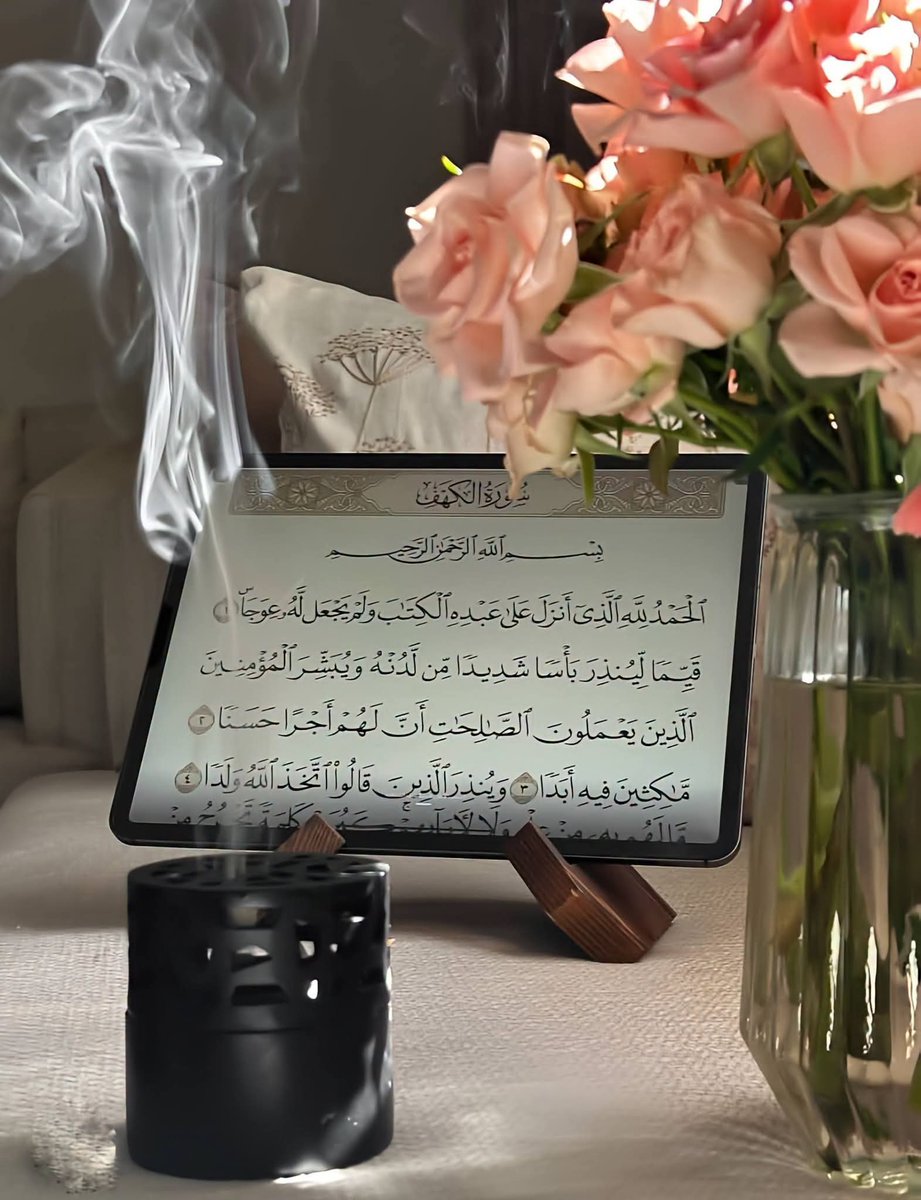 سُورَةُ الكَهْفِ
بِسْمِ اللَّهِ الرَّحْمَٰنِ الرَّحِيمِ
ٱلْحَمْدُ لِلَّهِ ٱلَّذِىٓ أَنزَلَ عَلَىٰ عَبْدِهِ ٱلْكِتَٰبَ وَلَمْ يَجْعَل لَّهُۥ عِوَجَاۜ ١
قَيِّمًا لِّيُنذِرَ بَأْسًا شَدِيدًا مِّن لَّدُنْهُ وَيُبَشِّرَ ٱلْمُؤْمِنِينَ
ٱلَّذِينَ يَعْمَلُونَ ٱلصَّٰلِحَٰتِ أَنَّ لَهُمْ أَجْرًا حَسَنًا ٢
مَّٰكِثِينَ فِيهِ أَبَدًا ٣ وَيُنذِرَ ٱلَّذِينَ قَالُوا۟ ٱتَّخَذَ ٱللَّهُ وَلَدًا ٤
مَّا لَهُم بِهِۦ مِنْ عِلْمٍ وَلَا لِـَٔابَآئِهِمْ كَبُرَتْ كَلِمَةً تَخْرُجُ مِنْ